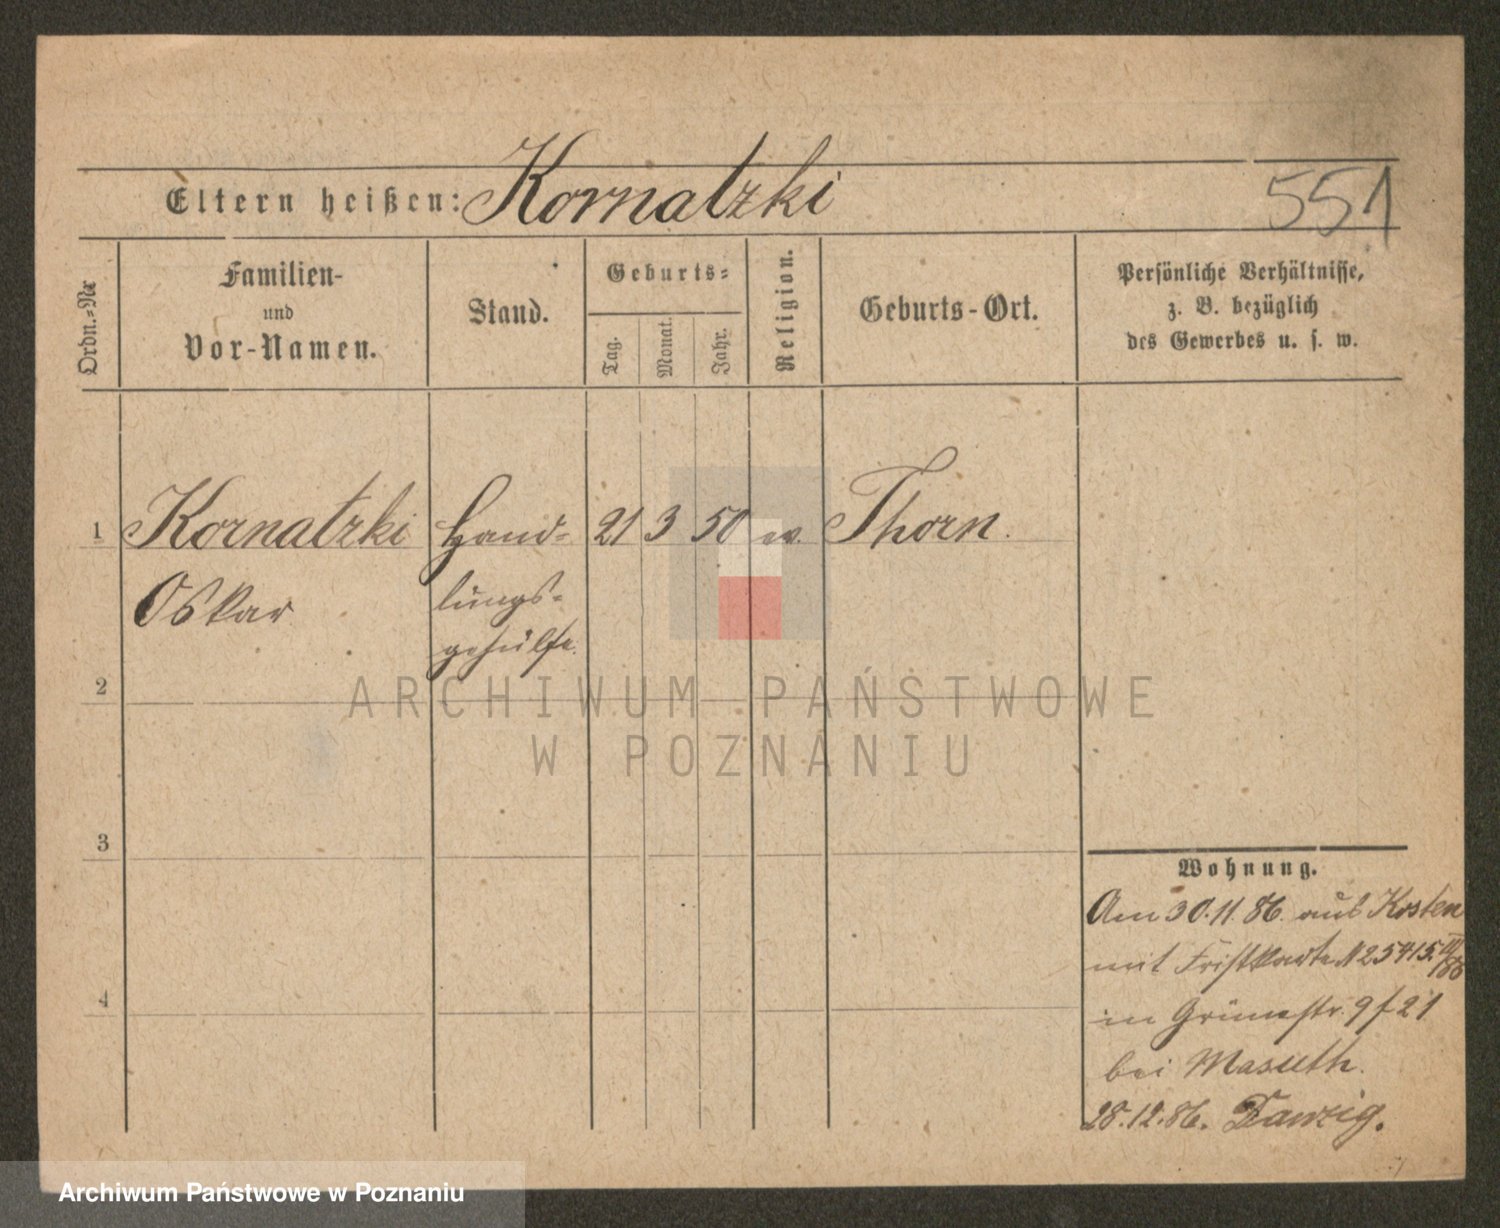 Eltern heißen: Kornatzki
551
Ordn.-№
Familien-
und
Vor-Namen.
Stand.
Geburts-
Tag.
Monat.
Jahr.
Religion.
Geburts-Ort.
Persönliche Verhältnisse,
z. B. bezüglich
des Gewerbes u. s. w.
1 Kornatzki Hand- 21 3 50 ev. Thorn.
Oskar lungs-
gehülfe.
2
ARCHIWUM PAŃSTWOWE
W POZNANIU
3
4
Wohnung.
Am 30.11.86. aus Kosten
mit Fristkarte N 25415
in Grünestr. 9 f 21
bei Masuth.
28.12.86. Danzig.
Archiwum Państwowe w Poznaniu